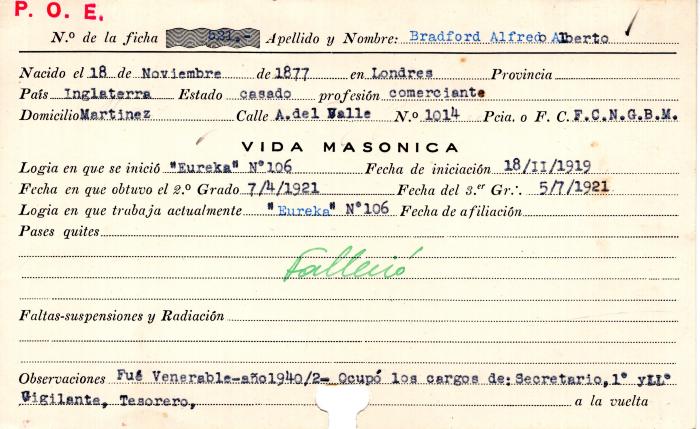 P. O. E.
N.º de la ficha 521.- Apellido y Nombre: Bradford Alfredo Alberto
Nacido el 18 de Noviembre de 1877 en Londres Provincia
País Inglaterra Estado casado profesión comerciante
Domicilio Martinez Calle A.del Valle N.º 1014 Pcia. o F. C. F.C.N.G.B.M.
VIDA MASONICA
Logia en que se inició "Eureka" N°106 Fecha de iniciación 18/II/1919
Fecha en que obtuvo el 2.º Grado 7/4/1921 Fecha del 3.er Gr∴ 5/7/1921
Logia en que trabaja actualmente "Eureka" N°106 Fecha de afiliación
Pases quites
Falleció
Faltas-suspensiones y Radiación
Observaciones Fué Venerable-año1940/2- Ocupó los cargos de: Secretario,1° yLL°
Vigilante, Tesorero, a la vuelta